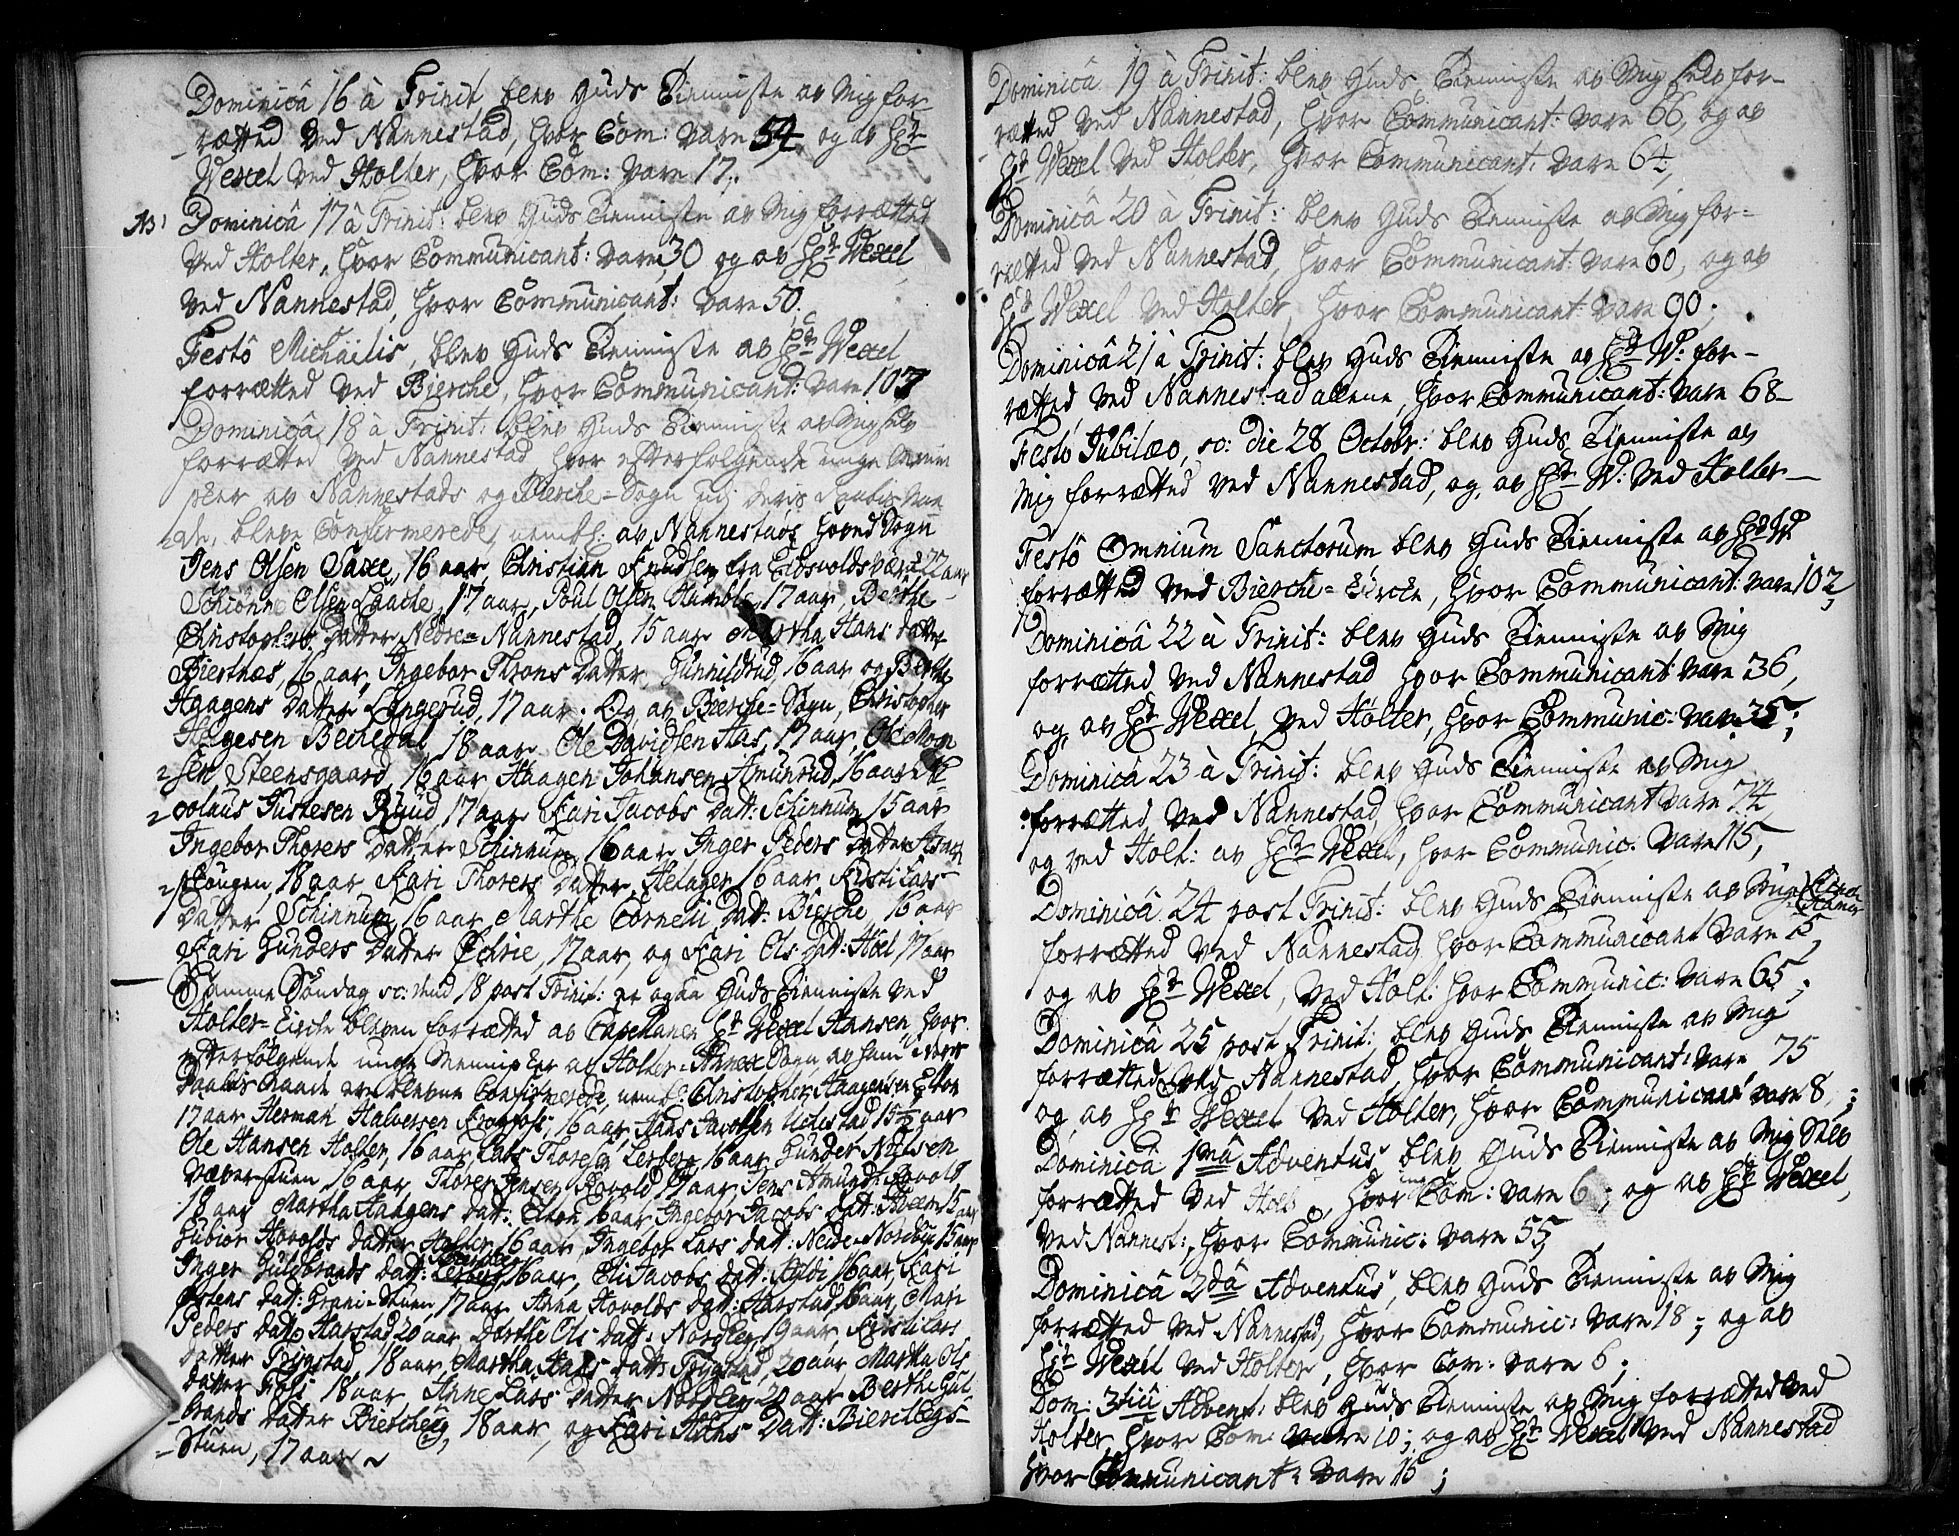 Dominicâ 16 â Trinit blev Guds Tienniste av Mig for-
rætted ved Nannestad, hvor Com: vare 54, og av Hr
Wexel ved Holter, hvor Com: vare 17,
NB: Dominicâ 17 â Trinit: blev Guds Tienniste av Mig forrætted
ved Holter, hvor Communicant: vare 30 og av Hr Wexel
ved Nannestad, hvor Communicant: vare 50.
Festô Michaëlis, blev Guds Tienniste av Hr Wexel
forrætted ved Bierche, hvor Communicant: vare 107
Dominicâ 18 â Trinit: blev Guds Tienniste av Mig selv
forrætted ved Nannestad, hvor efterfølgende unge Menni
sker av Nannestads og Bierche-Sogn udj deris Daabis Naa-
de, bleve Confirmerede, nembl: av Nannestads Hoved Sogn
Jens Olsen Saxe, 16 aar, Christian Knudsen fra Eidsvolds værk 22 aar
Schiønne Olsen Laache, 17 aar, Poul Olsen Hamble, 17 aar, Berthe
Christophers Datter Nedre-Nannestad, 15 aar Martha Hans datter
Biertnæs, 16 aar, Ingebor Throns Datter Gunnildrud, 16 aar og Berthe
Haagens Datter Lyngerud, 17 aar; Og av Bierche-Sogn, Christopher
Helgesen Bechedal 18 aar Ole Davidsen Aas, 17 aar, Ole Mogn
sen Steensgaard, 16 aar Haagen Johansen Amunrud, 16 aar Ni-
colaus Justesen Ryud 17 aar Kari Jacobs Datt: Schinnum 15 aar
Ingebor Thorers Datter Schinnum 16 aar Inger Peders Datter Asach
skougen, 18 aar Kari Thorers Datter, Helager 16 aar Kirsti Lars
Datter Schinnum 16 aar Marthe Corneli Datt: Bierche 16 aar
Kari Gunders Datter Echrie, 17 aar, og Kari Ols Datt: Hoel 17 aar
Samme Søndag sc: 18 post Trinit: er ogsaa Guds Tienniste ved
Holter-Kirche bleven forrætted av Capellanen Hr Wexel Hansen, hvor
efterfølgende unge Mennisker af Holter-Annex Sogn, av samme deris
Daabis Naade ere blevne Confirmerede, nembl: Christopher Haagensen Elton
17 aar Herman Halversen Kragfoss, 16 aar, Hans Jacobsen Udelstad 15½ aar
Ole Hansen Holter, 16 aar, Lars Thoresen Lerberg 16 aar, Gunder Nielsen
Væverstuen 16 aar, Thorer Jensen Hovold 17 aar Jens Amunds: Hovold
18 aar Martha Haagens Datt: Elton 16 aar Ingebor Jacobs Datt: Aaeen 15 aar
Gubiør Hovolds Datter Holter 16 aar, Ingebor Lars Datt: Nedre-Nordbye 15 aar
Inger Guldbrands Datt: Lerberg 16 aar, Eli Jacobs Datt: Holdi 16 aar, Kari
Østens Datt: Grani-Stuen, 17 aar Anna Hovolds Datt: Harstad 16 aar, Mari
Peders Datt: Harstad 20 aar, Dorthe Ols Datt: Nordbye, 19 aar Kirsti Lars
Datter Trygstad, 18 aar, Martha Hans Datt: Trygstad, 20 aar Martha Ols
Datter 18 aar Anne Lars Datter Nordbye 20 aar Berthe Gul-
brands Datter Biercheeg, 18 aar, og Kari Hans Datt: Biercheegs-
Stuen, 17 aar
Dominicâ 19 â Trinit: blev Guds Tienniste av Mig selv for-
rætted ved Nannestad, hvor Communicant: vare 66, og av
Hr Wexel ved Holter, hvor Communicant: vare 64,
Dominicâ 20 â Trinit: blev Guds Tienniste av Mig for-
rætted ved Nannestad, hvor Communicant: vare 60, og av
Hr Wexel ved Holter, hvor Communicant: vare 90;
Dominicâ 21 â Trinit: blev Guds Tienniste av Hr W: for-
rætted ved Nannestad allene, hvor Communicant: vare 68-
Festô Jubilæo, sc: die 28 Octobr: blev Guds Tienniste av
Mig forrætted ved Nannestad, og av Hr W: ved Holter-
Festô Omnium Sanctorum blev Guds Tienniste av Hr W
forrætted ved Bierche-Kirche, hvor Communicant: vare 102,
Dominicâ 22 â Trinit: blev Guds Tienniste av Mig
forrætted ved Nannestad hvor Communicant vare 36,
og av Hr Wexel, ved Holter, hvor Communic: vare 35;
Dominicâ 23 â Trinit: blev Guds Tienniste av Mig
forrætted ved Nannestad, hvor Communicant vare 74
og ved Holt: av Hr Wexel, hvor Communic. vare 115,
Dominicâ 24 post Trinit: blev Guds Tienniste av Mig
forrætted ved Nannestad hvor Communicant vare 15,
og av Hr Wexel, ved Holt: hvor Communic: vare 65;
Dominicâ 25 post Trinit: blev Guds Tienniste av Mig
forrætted ved Nannestad, hvor Communicant: vare 75
og av Hr Wexel ved Holter, hvor Communicant vare 8,;
Dominicâ 1mâ Adventus blev Guds Tienniste av Mig Selv
forrætted ved Holt, hvor Com: vare 6; og av Hr Wexel,
ved Nannest:, hvor Communic: vare 55,
Dominicâ 2dâ Adventus, blev Guds Tienniste av Mig
forrætted ved Nannestad, hvor Communic: vare 18; og av
Hr Wexel ved Holter, hvor Com: vare 6;
Dom: 3tiâ Advent: blev Guds Tienniste av Mig forrætted ved
Holter hvor Com: vare 10; og av Hr Wexel ved Nannestad
hvor Communicant: vare 15;